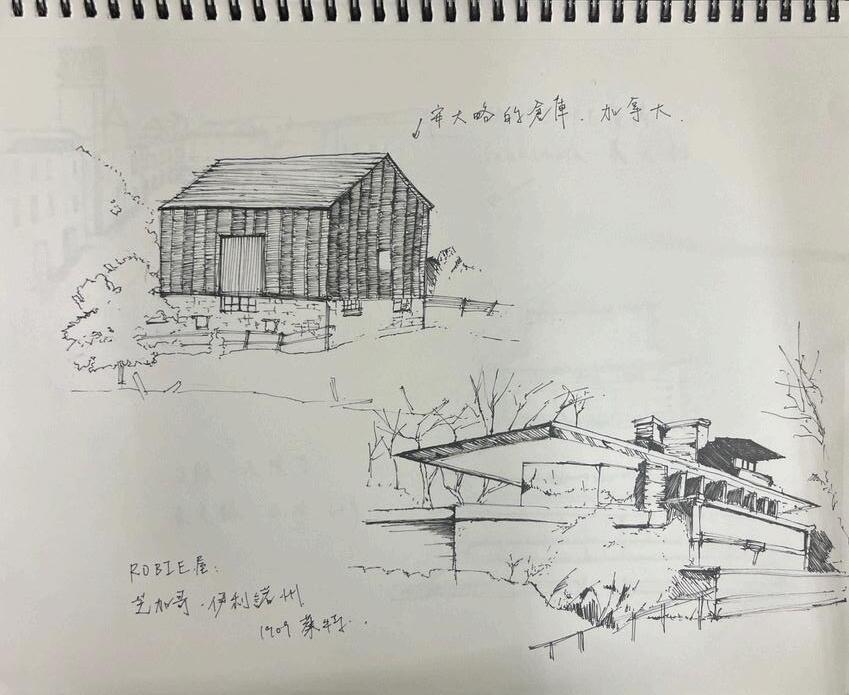 安大略的倉庫.加拿大.
ROBIE屋:
芝加哥.伊利諾州
1909 萊特..